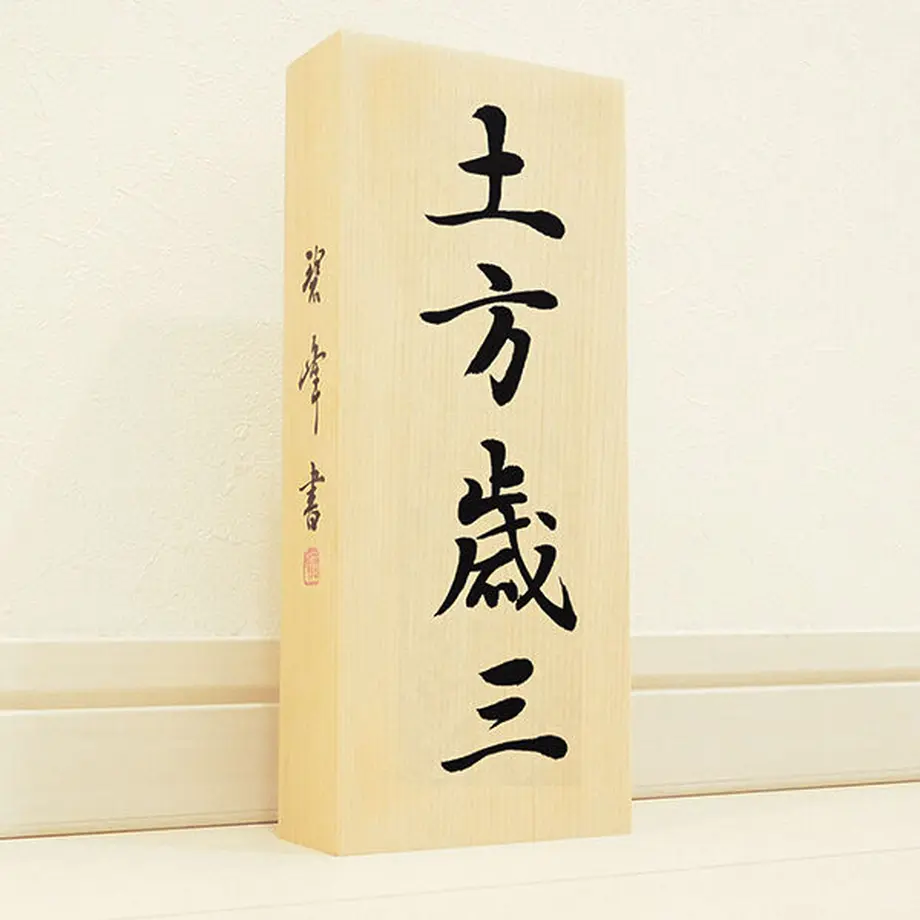 土方歳三
碧峰書